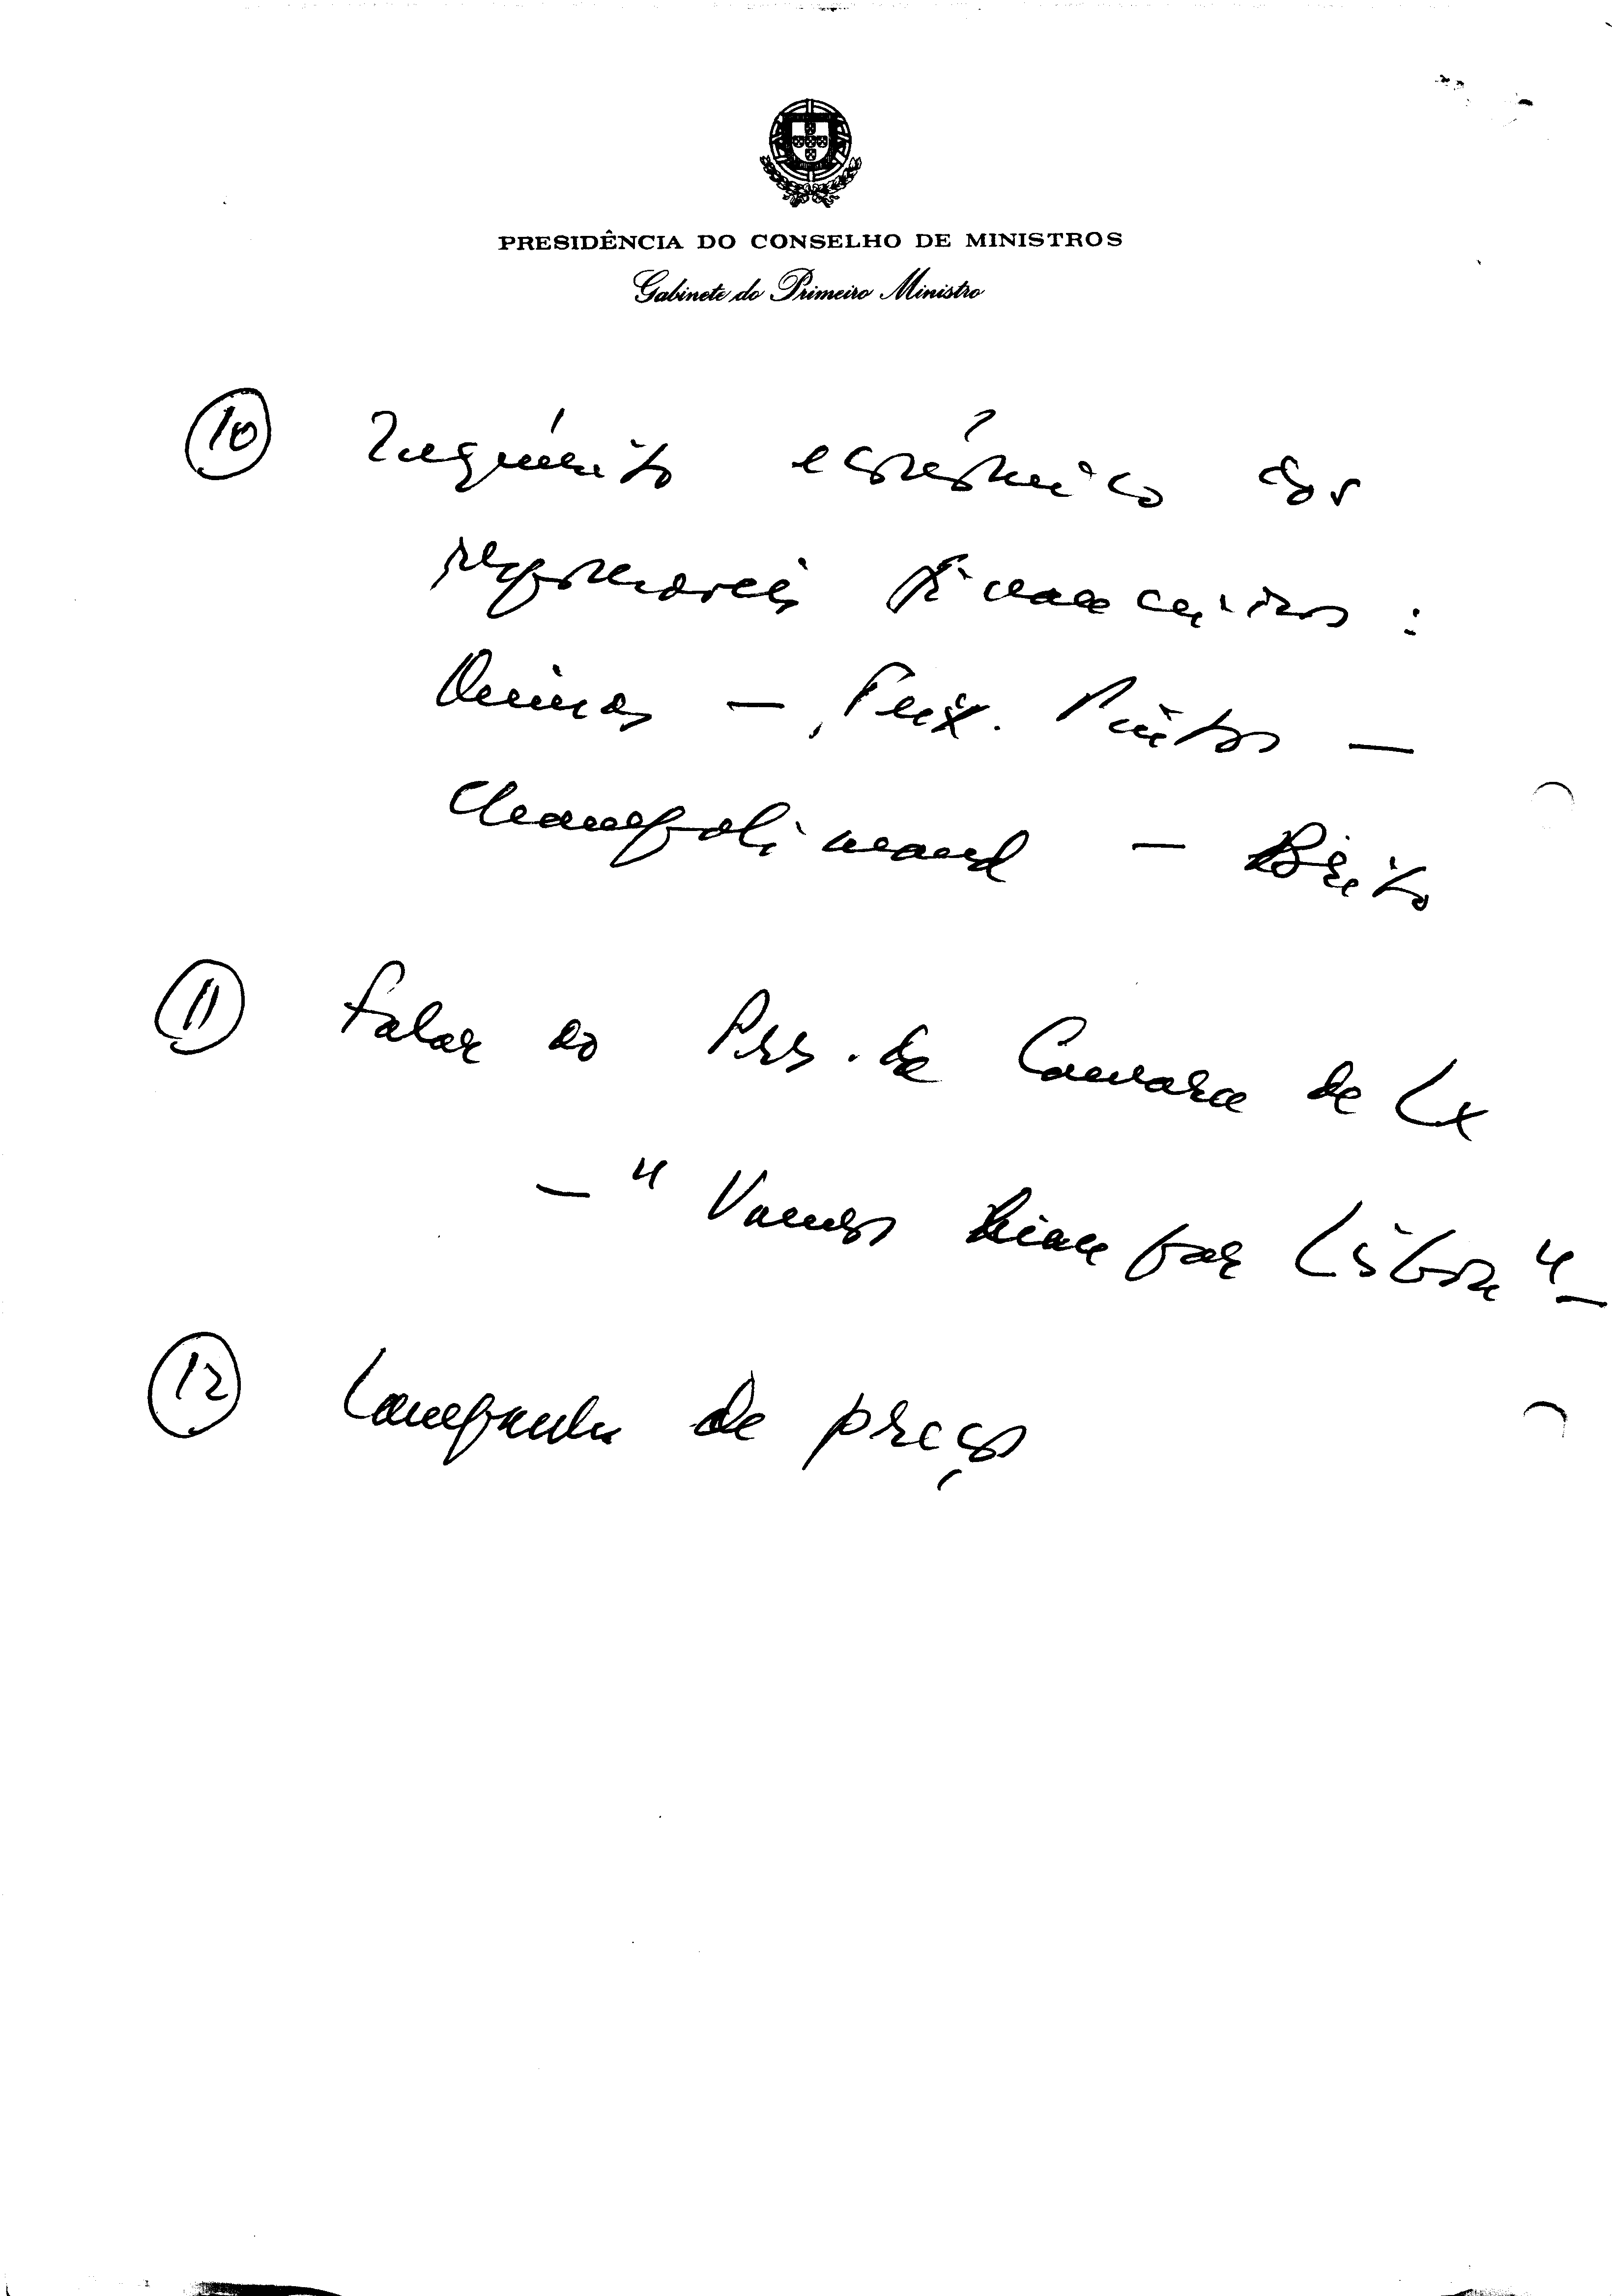 PRESIDÊNCIA DO CONSELHO DE MINISTROS
Gabinete do Primeiro Ministro
10 Inquérito económico aos
responsáveis financeiros :
Quinas – Pinto –
Champalimaud – Brito
11 Falar ao Pres. da Camara de Lx
– " Vamos limpar Lisboa " –
12 Campanha de preços